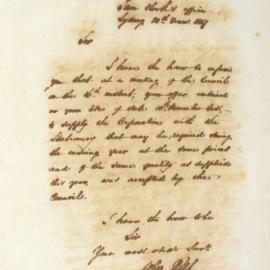 Town Clerk's Office
Sydney 20th Decr. 1847
Sir
I have the honor to inform
you that at a meeting of the Council
on the 16th instant, your offer contained
in your letter of date 18th November last,
to supply the Corporation with the
Stationery that may be required during
the ensuing year at the same prices
and of the same quality as supplied
this year, was accepted by the
Council.
I have the honor to be
Sir
Your most obedt Servt